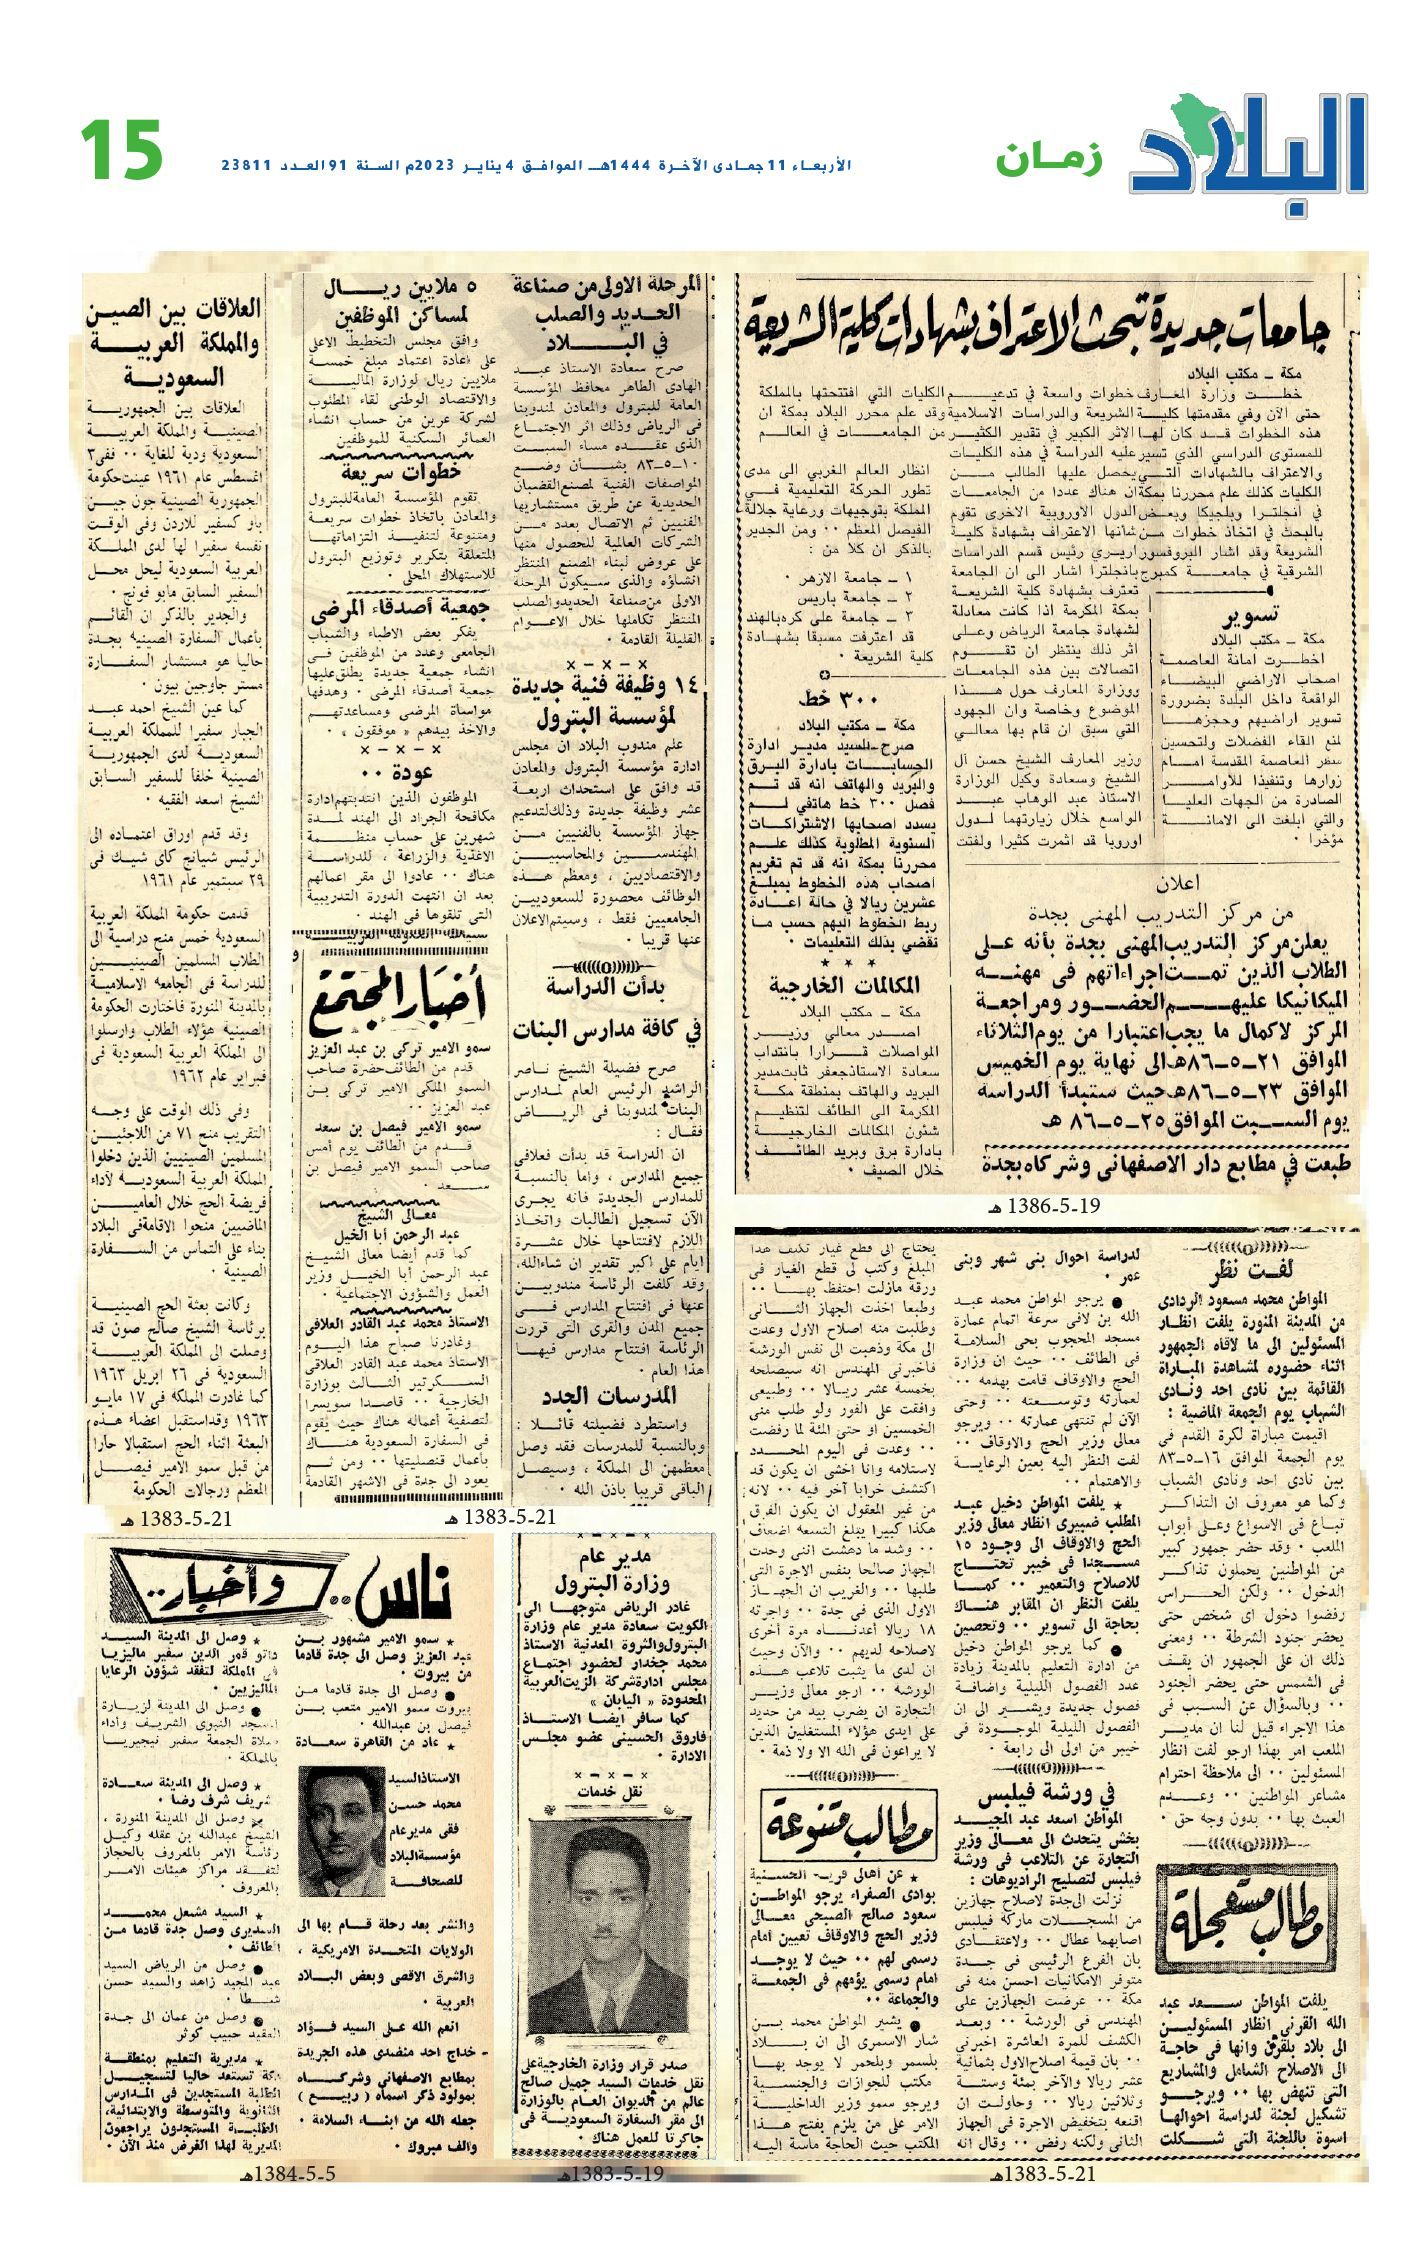 البلاد
زمـان
الأربعـاء 11جمـادى الآخـرة 1444هـ الموافـق 4 ينايـر 2023م السـنة 91 العـدد 23811
15
جامعات جديدة تبحث الاعتراف بشهادات كلية الشريعة
مكة ــ مكتب البلاد
تسوير
مكة ــ مكتب البلاد
اخطرت امانة العاصمة
اصحاب الاراضي البيضاء
الواقعة داخل البلدة بضرورة
تسوير اراضيهم وحجزها
لمنع القاء الفضلات ولتحسين
منظر العاصمة المقدسة امام
زوارها وتنفيذا للأوامر
الصادرة من الجهات العليا
والتي ابلغت الى الامانة
مؤخرا
انظار العالم الغربي الى مدى
تطور الحركة التعليمية في
المملكة بتوجيهات ورعاية جلالة
الفيصل المعظم ٠٠ ومن الجدير
بالذكر ان كلا من :
١ ــ جامعة الازهر ٠
٢ ــ جامعة باريس
٣ ــ جامعة على كره بالهند
قد اعترفت مسبقا بشهادة
كلية الشريعة ٠
٣٠٠ خط
مكة ــ مكتب البلاد
صرح السيد مدير ادارة
الحسابات بادارة البرق
والبريد والهاتف انه قد تم
فصل ٣٠٠ خط هاتفي لم
يسدد اصحابها الاشتراكات
السنوية المطلوبة كذلك علم
محررنا بمكة انه قد تم تغريم
اصحاب هذه الخطوط بمبلغ
عشرين ريالا في حالة اعادة
ربط الخطوط اليهم حسب ما
تقضي بذلك التعليمات ٠
المكالمات الخارجية
مكة ــ مكتب البلاد
اصدر معالي وزير
المواصلات قرارا بانتداب
سعادة الاستاذ جعفر ثابت مدير
البريد والهاتف بمنطقة مكة
المكرمة الى الطائف لتنظيم
شئون المكالمات الخارجية
بادارة برق وبريد الطائف
خلال الصيف ٠
اعلان
من مركز التدريب المهنى بجدة
يعلن مركز التدريب المهنى بجدة بأنه على
الطلاب الذين تمت اجراءاتهم فى مهنه
الميكانيكا عليهم الحضور ومراجعة
المركز لاكمال ما يجب اعتبارا من يوم الثلاثاء
الموافق ٢١ــ٥ــ٨٦هـ الى نهاية يوم الخميس
الموافق ٢٣ــ٥ــ٨٦هـ حيث ستبدأ الدراسه
يوم السبت الموافق ٢٥ــ٥ــ٨٦ هـ
طبعت في مطابع دار الاصفهانى وشركاه بجدة
1386-5-19 هـ
المرحلة الاولى من صناعة
الحديد والصلب
في البلاد
صرح سعادة الاستاذ عبد
الهادى الطاهر محافظ المؤسسة
العامة للبترول والمعادن لمندوبنا
فى الرياض وذلك اثر الاجتماع
الذى عقده مساء السبت
١٠ــ٥ــ٨٣ بشأن وضع
المواصفات الفنية لمصنع القضبان
الحديدية عن طريق مستشاريها
الفنيين ثم الاتصال بعدد من
الشركات العالمية للحصول منها
على عروض لبناء المصنع المنتظر
انشاؤه والذى سيكون المرحلة
الاولى من صناعة الحديد والصلب
المنتظر تكاملها خلال الاعوام
القليلة القادمة ٠
١٤ وظيفة فنية جديدة
لمؤسسة البترول
علم مندوب البلاد ان مجلس
ادارة مؤسسة البترول والمعادن
قد وافق على استحداث اربعة
عشر وظيفة جديدة وذلك لتدعيم
جهاز المؤسسة بالفنيين من
المهندسين والمحاسبين
والاقتصاديين ، ومعظم هذه
الوظائف محصورة للسعوديين
الجامعيين فقط ، وسيتم الاعلان
عنها قريبا ٠
بدأت الدراسة
في كافة مدارس البنات
صرح فضيلة الشيخ ناصر
الراشد الرئيس العام لمدارس
البنات لمندوبنا فى الرياض
فقال :
ان الدراسة قد بدأت فعلا فى
جميع المدارس ، واما بالنسبة
للمدارس الجديدة فانه يجرى
الآن تسجيل الطالبات واتخاذ
اللازم لافتتاحها خلال عشرة
ايام على اكبر تقدير ان شاءالله،
وقد كلفت الرئاسة مندوبين
عنها فى افتتاح المدارس فى
جميع المدن والقرى التى قررت
الرئاسة افتتاح مدارس فيها
هذا العام ٠
المدرسات الجدد
واستطرد فضيلته قائلا :
وبالنسبة للمدرسات فقد وصل
معظمهن الى المملكة ، وسيصل
الباقى قريبا باذن الله ٠
٥ ملايين ريال
لمساكن الموظفين
وافق مجلس التخطيط الاعلى
على اعادة اعتماد مبلغ خمسة
ملايين ريال لوزارة المالية
والاقتصاد الوطنى لقاء المطلوب
لشركة عرين من حساب انشاء
العمائر السكنية للموظفين
خطوات سريعة
تقوم المؤسسة العامة للبترول
والمعادن باتخاذ خطوات سريعة
ومتنوعة لتنفيذ التزاماتها
المتعلقة بتكرير وتوزيع البترول
للاستهلاك المحلى ٠
جمعية أصدقاء المرضى
يفكر بعض الاطباء والشباب
الجامعى وعدد من الموظفين فى
انشاء جمعية جديدة يطلق عليها
جمعية أصدقاء المرضى ٠ وهدفها
مواساة المرضى ومساعدتهم
والاخذ بيدهم « موفقون » ٠
عودة ٠٠
الموظفون الذين انتدبتهم ادارة
مكافحة الجراد الى الهند لمدة
شهرين على حساب منظمة
الاغذية والزراعة ، للدراسة
هناك ٠٠ عادوا الى مقر اعمالهم
بعد ان انتهت الدورة التدريبية
التى تلقوها فى الهند ٠
أخبار المجتمع
سمو الامير تركى بن عبد العزيز
قدم من الطائف حضرة صاحب
السمو الملكى الامير تركى بن
عبد العزيز ٠٠
سمو الامير فيصل بن سعد
قدم من الطائف يوم أمس
صاحب السمو الامير فيصل بن
سعد ٠
معالى الشيخ
عبد الرحمن أبا الخيل
كما قدم أيضا معالى الشيخ
عبد الرحمن أبا الخيل وزير
العمل والشؤون الاجتماعية ٠
الاستاذ محمد عبد القادر العلاقى
وغادرنا صباح هذا اليوم
الاستاذ محمد عبد القادر العلاقى
السكرتير الثالث بوزارة
الخارجية ٠٠ قاصدا سويسرا
لتصفية أعماله هناك حيث يقوم
فى السفارة السعودية هناك
بأعمال قنصليتها ٠٠ ومن ثم
يعود الى جدة فى الاشهر القادمة
1383-5-21 هـ
العلاقات بين الصين
والمملكة العربية
السعودية
العلاقات بين الجمهورية
الصينية والمملكة العربية
السعودية ودية للغاية ٠٠ ففى ٣
اغسطس عام ١٩٦١ عينت حكومة
الجمهورية الصينية جون جين
باو كسفير للاردن وفى الوقت
نفسه سفيرا لها لدى المملكة
العربية السعودية ليحل محل
السفير السابق مابو فونج ٠
والجدير بالذكر ان القائم
بأعمال السفارة الصينية بجدة
حاليا هو مستشار السفارة
مستر جاوجين بيون ٠
كما عين الشيخ احمد عبد
الجبار سفيرا للمملكة العربية
السعودية لدى الجمهورية
الصينية خلفا للسفير السابق
الشيخ اسعد الفقيه ٠
وقد قدم اوراق اعتماده الى
الرئيس شيانج كاى شيك فى
٢٩ سبتمبر عام ١٩٦١
قدمت حكومة المملكة العربية
السعودية خمس منح دراسية الى
الطلاب المسلمين الصينيين
للدراسة فى الجامعه الاسلامية
بالمدينة المنورة فاختارت الحكومة
الصينية هؤلاء الطلاب وارسلوا
الى المملكة العربية السعودية فى
فبراير عام ١٩٦٢
وفى ذلك الوقت على وجه
التقريب منح ٧١ من اللاجئين
المسلمين الصينيين الذين دخلوا
المملكة العربية السعودية لآداء
فريضة الحج خلال العامين
الماضيين منحوا الاقامة فى البلاد
بناء على التماس من السفارة
الصينية ٠
وكانت بعثة الحج الصينية
برئاسة الشيخ صالح صون قد
وصلت الى المملكة العربية
السعودية فى ٢٦ ابريل ١٩٦٣
كما غادرت المملكة فى ١٧ مايو
١٩٦٣ وقد استقبل اعضاء هذه
البعثة اثناء الحج استقبالا حارا
من قبل سمو الامير فيصل
المعظم ورجالات الحكومة
1383-5-21 هـ
لفت نظر
المواطن محمد مسعود الردادى
من المدينة المنورة يلفت انظار
المسئولين الى ما لاقاه الجمهور
اثناء حضوره لمشاهدة المباراة
القائمة بين نادى احد ونادى
الشباب يوم الجمعة الماضية :
اقيمت مباراة لكرة القدم فى
يوم الجمعة الموافق ١٦ــ٥ــ٨٣
بين نادى احد ونادى الشباب
وكما هو معروف ان التذاكر
تباع فى الاسواع وعلى أبواب
الملعب ٠ وقد حضر جمهور كبير
من المواطنين يحملون تذاكر
الدخول ٠٠ ولكن الحراس
رفضوا دخول اى شخص حتى
يحضر جنود الشرطة ٠٠ ومعنى
ذلك ان على الجمهور ان يقف
فى الشمس حتى يحضر الجنود
٠٠ وبالسؤال عن السبب فى
هذا الاجراء قيل لنا ان مدير
الملعب امر بهذا ارجو لفت انظار
المسئولين ٠٠ الى ملاحظة احترام
مشاعر المواطنين ٠٠ وعدم
العبث بها ٠٠ بدون وجه حق ٠
مطالب مستعجلة
يلفت المواطن سعد عبد
الله القرنى انظار المسئولين
الى بلاد بلقرق وانها فى حاجة
الى الاصلاح الشامل والمشاريع
التى تنهض بها ٠٠ ويرجو
تشكيل لجنة لدراسة احوالها
اسوة باللجنة التى شكلت
لدراسة احوال بنى شهر وبنى
عمر ٠
يرجو المواطن محمد عبد
الله بن لافى سرعة اتمام عمارة
مسجد المحجوب بحى السلامة
فى الطائف ٠٠ حيث ان وزارة
الحج والاوقاف قامت بهدمه ٠٠
لعمارته وتوسعته ٠٠ وحتى
الآن لم تنتهى عمارته ٠٠ ويرجو
معالى وزير الحج والاوقاف ٠٠
لفت النظر اليه بعين الرعاية
والاهتمام ٠٠
يلفت المواطن دخيل عبد
المطلب ضبيرى انظار معالى وزير
الحج والاوقاف الى وجود ١٥
مسجدا فى خيبر تحتاج
للاصلاح والتعمير ٠٠ كما
يلفت النظر ان المقابر هناك
بحاجة الى تسوير ٠٠ وتحصين
كما يرجو المواطن دخيل
من ادارة التعليم بالمدينة زيادة
عدد الفصول الليلية واضافة
فصول جديدة ويشير الى ان
الفصول الليلية الموجودة فى
خيبر من اولى الى رابعة ٠
في ورشة فيلبس
المواطن اسعد عبد المجيد
بخش يتحدث الى معالى وزير
التجارة عن التلاعب فى ورشة
فيلبس لتصليح الراديوهات :
نزلت الى جدة لاصلاح جهازين
من المسجلات ماركة فيلبس
اصابهما عطال ٠٠ ولاعتقادى
بان الفرع الرئيسى فى جدة
متوفر الامكانيات احسن منه فى
مكة ٠٠ عرضت الجهازين على
المهندس فى الورشة ٠٠ وبعد
الكشف للمرة العاشرة اخبرنى
٠٠ بان قيمة اصلاح الاول بثمانية
عشر ريالا والآخر بمئة وستة
وثلاثين ريالا ٠٠ وحاولت ان
اقنعه بتخفيض الاجرة فى الجهاز
الثانى ولكنه رفض ٠٠ وقال انه
يحتاج الى قطع غيار تكلف هذا
المبلغ وكتب لى قطع الغيار فى
ورقة مازلت احتفظ بها ٠٠
وطبعا اخذت الجهاز الثانى
وطلبت منه اصلاح الاول وعدت
الى مكة وذهبت الى نفس الورشة
فأخبرنى المهندس انه سيصلحه
بخمسة عشر ريالا ٠٠ وطبيعى
وافقت على الفور ولو طلب منى
الخمسين او حتى المئة لما رفضت
٠٠ وعدت فى اليوم المحدد
لاستلامه وانا اخشى ان يكون قد
اكتشف خرابا آخر فيه ٠٠ لانه
من غير المعقول ان يكون الفرق
هكذا كبيرا يبلغ التسعه اضعاف
٠٠ وشد ما دهشت اننى وجدت
الجهاز صالحا بنفس الاجرة التى
طلبها ٠٠ والغريب ان الجهاز
الاول الذى فى جدة ٠٠ واجرته
١٨ ريالا أعدناه مرة أخرى
لاصلاحه لديهم ٠٠ والآن وحيث
ان لدى ما يثبت تلاعب هذه
الورشه ٠٠ ارجو معالى وزير
التجارة ان يضرب بيد من حديد
على ايدى هؤلاء المستغلين الذين
لا يراعون فى الله الا ولا ذمة ٠
مطالب متنوعة
عن أهالى قرية الحسنية
بوادى الصفراء يرجو المواطن
سعود صالح الصبحى معالى
وزير الحج والاوقاف تعيين أمام
رسمى لهم ٠٠ حيث لا يوجد
امام رسمى يؤمهم فى الجمعة
والجماعة ٠٠
يشير المواطن محمد بن
شار الاسمرى الى ان بلاد
بلسمر وبلحمر لا يوجد بها
مكتب للجوازات والجنسية
ويرجو سمو وزير الداخلية
الامر على من يلزم بفتح هذا
المكتب حيث الحاجة ماسة اليه
1383-5-21 هـ
مدير عام
وزارة البترول
غادر الرياض متوجها الى
الكويت سعادة مدير عام وزارة
البترول والثروة المعدنية الاستاذ
محمد جخدار لحضور اجتماع
مجلس ادارة شركة الزيت العربية
المحدودة « اليابان »
كما سافر ايضا الاستاذ
فاروق الحسينى عضو مجلس
الادارة ٠
نقل خدمات
صدر قرار وزارة الخارجية على
نقل خدمات السيد جميل صالح
عالم من الديوان العام بالوزارة
الى مقر السفارة السعودية فى
جاكرتا للعمل هناك ٠
1383-5-19هـ
ناس .. وأخبار ..
سمو الامير مشهور بن
عبد العزيز وصل الى جدة قادما
من بيروت ٠
وصل الى جدة قادما من
بيروت سمو الامير متعب بن
فيصل بن عبدالله ٠
عاد من القاهرة سعادة
الاستاذ السيد
محمد حسن
فقى مدير عام
مؤسسة البلاد
للصحافة
والنشر بعد رحلة قام بها الى
الولايات المتحدة الامريكية ،
والشرق الاقصى وبعض البلاد
العربية ٠
انعم الله على السيد فؤاد
خداج احد منضدى هذه الجريدة
بمطابع الاصفهانى وشركاه
بمولود ذكر اسماه ( ربيع )
جعله الله من ابناء السلامة ٠
والف مبروك ٠
وصل الى المدينة السيد
داتو قمر الدين سفير ماليزيا
فى المملكة لتفقد شؤون الرعايا
الماليزيين ٠
وصل الى المدينة لزيارة
المسجد النبوى الشريف وأداء
صلاة الجمعة سفير نيجيريا
بالمملكة ٠
وصل الى المدينة سعادة
شريف شرف رضا ٠
وصل الى المدينة المنورة ،
الشيخ عبدالله بن عقله وكيل
رئاسة الامر بالمعروف بالحجاز
لتفقد مراكز هيئات الامر
بالمعروف ٠
السيد مشعل محمد
السديرى وصل جدة قادما من
الطائف ٠
وصل من الرياض السيد
عبد المجيد زاهد والسيد حسن
شطا ٠
وصل من عمان الى جدة
العقيد حبيب كوثر
مديرية التعليم بمنطقة
مكة تستعد حاليا لتسجيل
الطلبة المستجدين فى المدارس
الثانوية والمتوسطة والابتدائية،
الطلبة المستجدون يراجعون
المديرية لهذا الغرض منذ الآن ٠
1384-5-5هـ